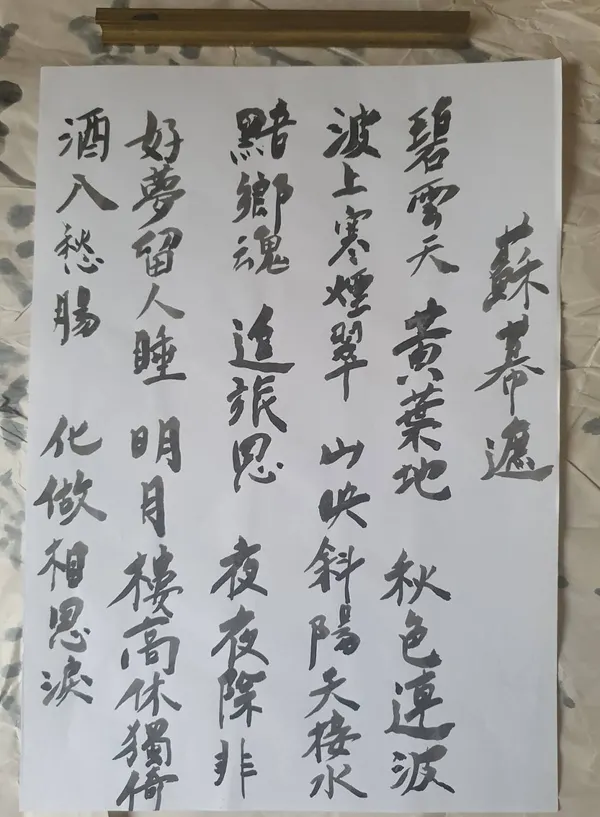 蘇幕遮
碧雲天 黃葉地 秋色連波
波上寒煙翠 山映斜陽天接水
黯鄉魂 進旅思 夜夜除非
好夢留人睡 明月樓高休獨倚
酒入愁腸 化做相思淚